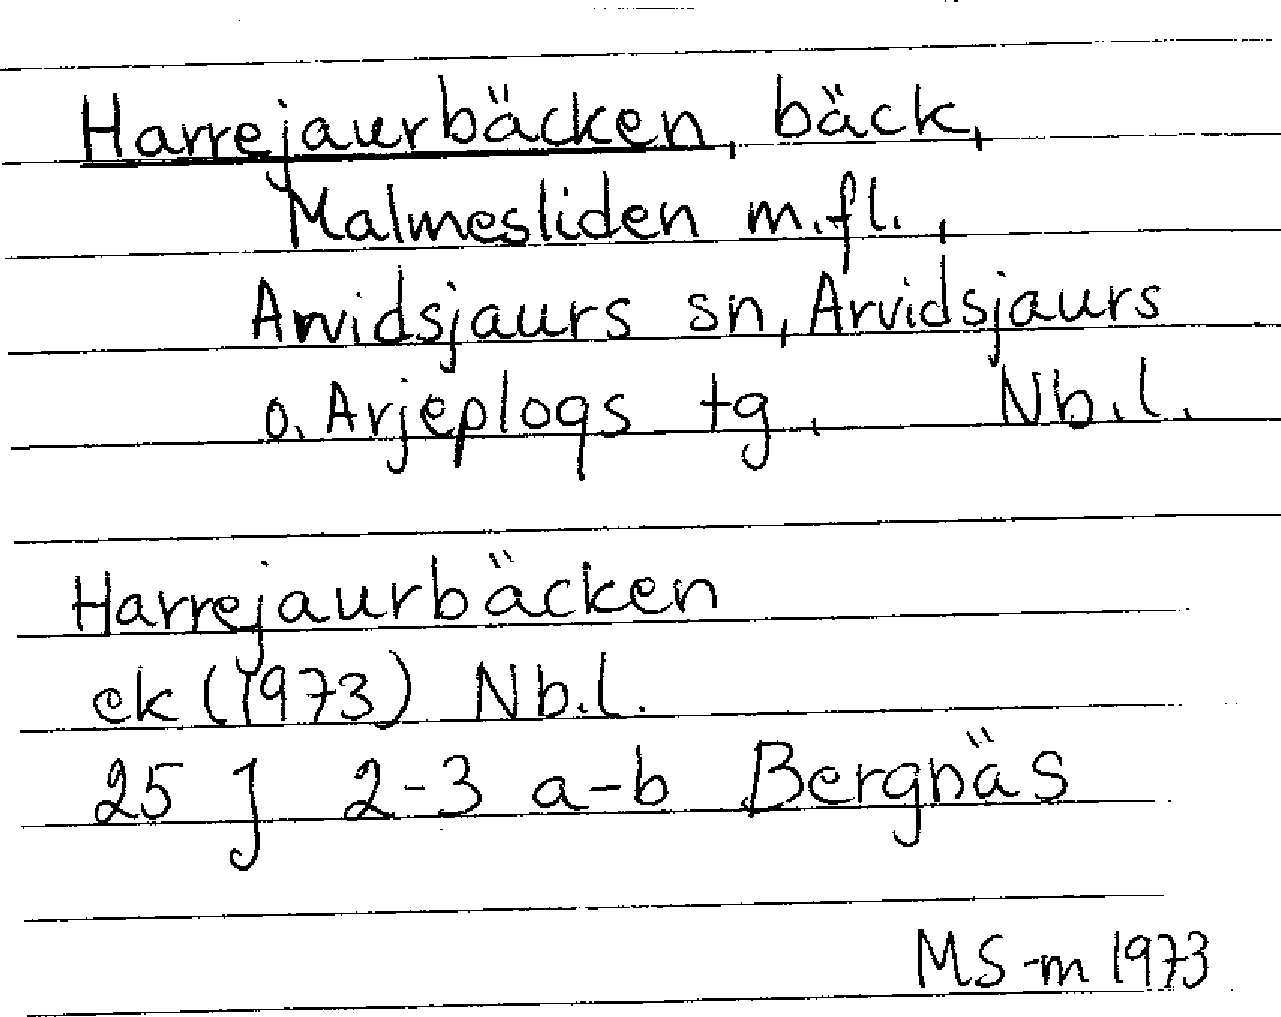 Harrejaurbäcken, bäck,
Malmesliden m.fl.,
Arvidsjaurs sn, Arvidsjaurs
o. Arjeplogs tg, Nb.l.
Harrejaurbäcken
ek (1973) Nb.l.
25 J 2-3 a-b Bergnäs
MS-m 1973